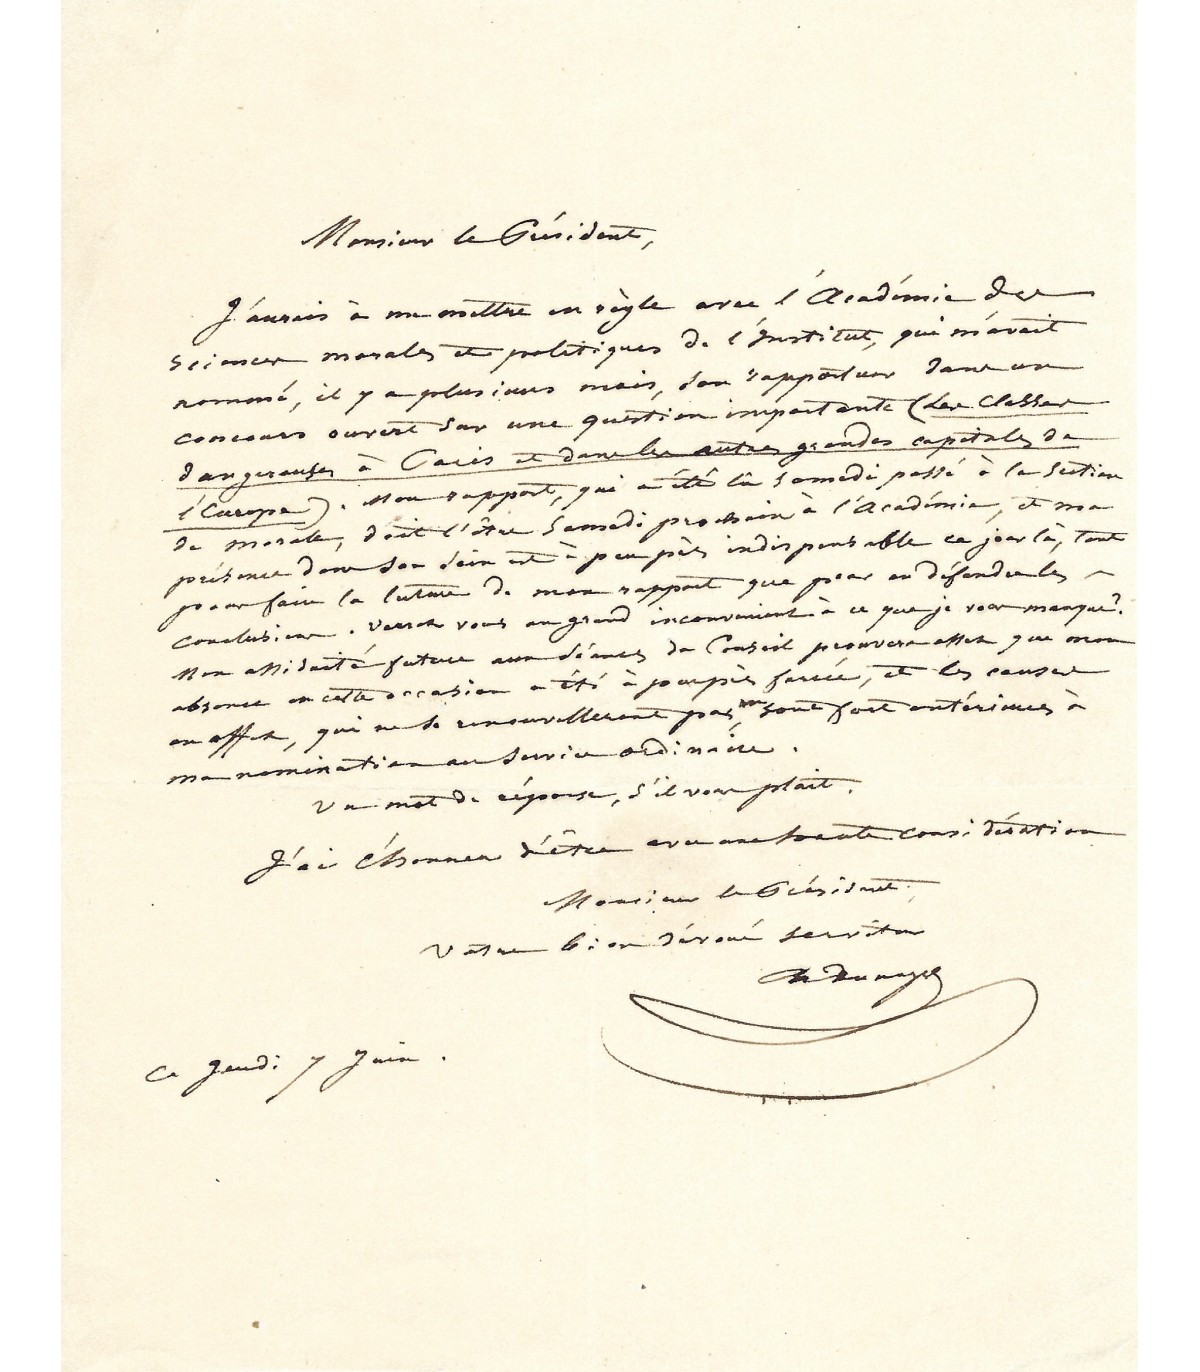 Monsieur le Président,
J'aurais à me mettre en règle avec l'Académie des
sciences morales et politiques de l'Institut, qui m'avait
nommé, il y a plusieurs mois, son rapporteur dans un
concours ouvert sur une question importante (Les Classes
dangereuses à Paris et dans les autres grandes capitales de
l'Europe). Mon rapport, qui a été lû samedi passé à la section
de morale, doit l'être samedi prochain à l'Académie, et ma
présence dans son sein est à peu près indispensable ce jour là, tant
pour faire la lecture de mon rapport que pour en défendre les
conclusions. Verrez vous un grand inconvenient à ce que je vous manque?
Mon assiduité future aux séances du Conseil prouvera assez que mon
absence en cette occasion a été à peu près forcée, et les causes
en effet, qui ne se renouvelleront pas, sont fort antérieures à
ma nomination au service ordinaire.
Un mot de réponse, s'il vous plait.
J'ai l'honneur d'être avec une haute considération
Monsieur le Président,
Votre bien dévoué serviteur
Ch Dunoyer
Ce Jeudi 7 Juin.